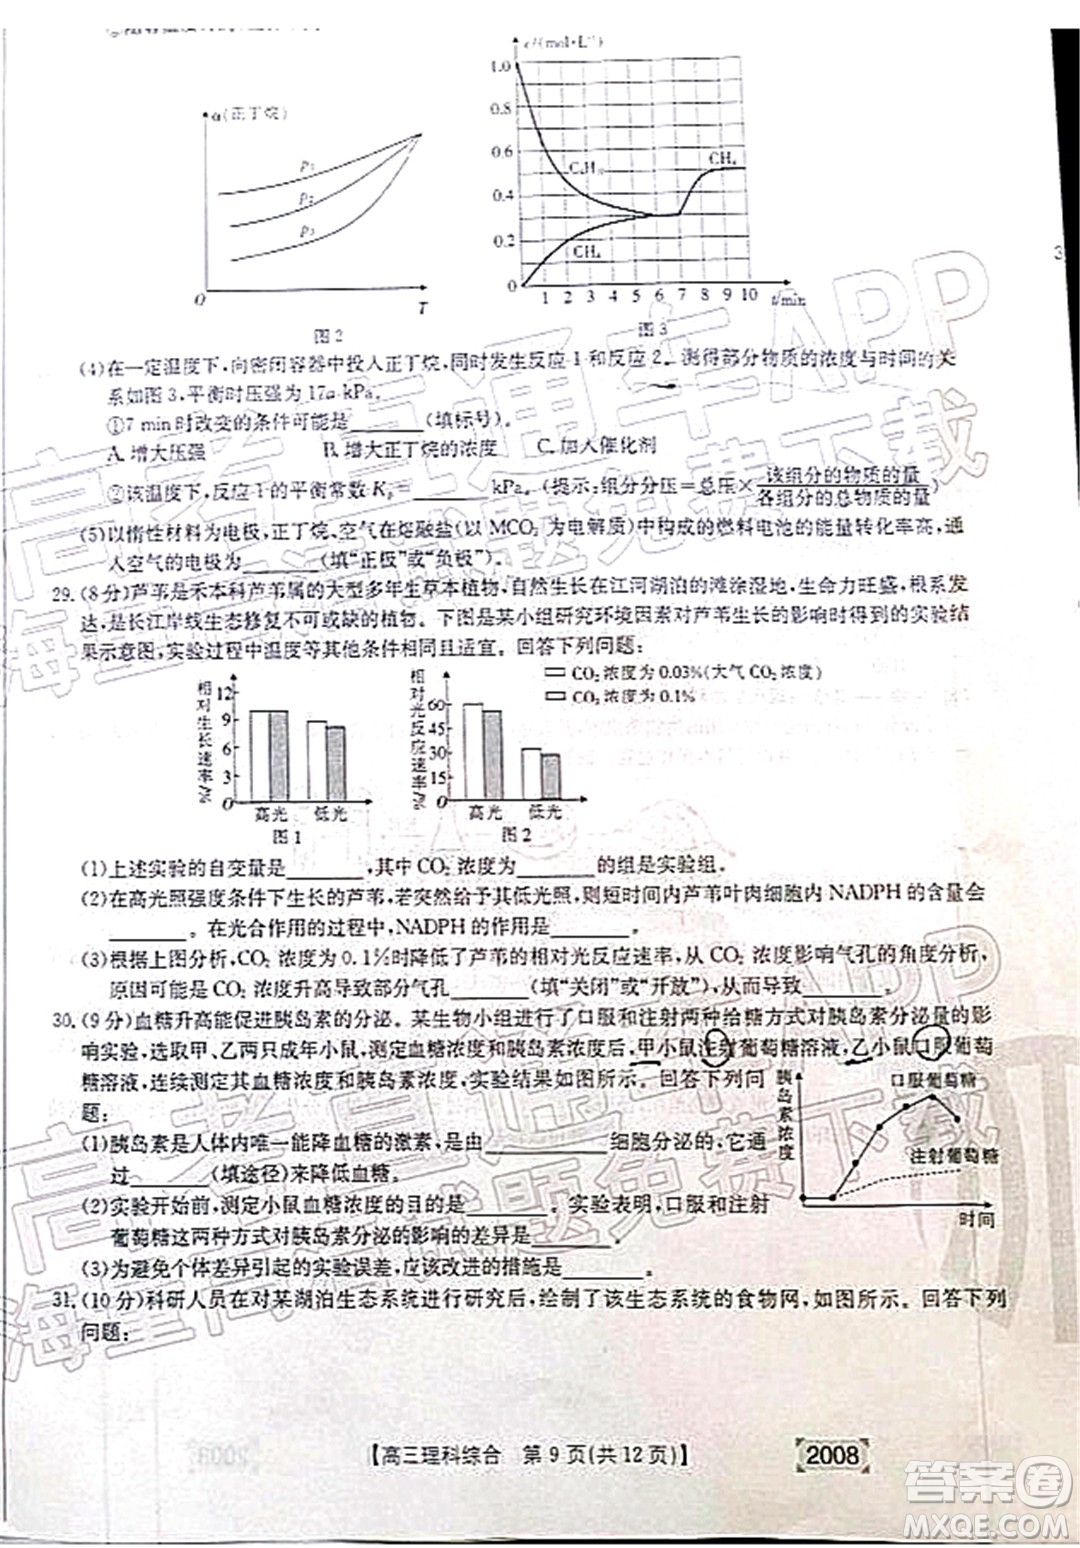 α(正丁烷)
p₁
p₂
p₃
O
T
图2
c/(mol·L⁻¹)
1.0
0.8
0.6
0.4
0.2
0
C₄H₁₀
CH₄
CH₄
1 2 3 4 5 6 7 8 9 10 t/min
图3
(4)在一定温度下,向密闭容器中投入正丁烷,同时发生反应1和反应2。测得部分物质的浓度与时间的关
系如图3,平衡时压强为17a kPa。
①7 min时改变的条件可能是______(填标号)。
A.增大压强 B.增大正丁烷的浓度 C.加入催化剂
②该温度下,反应1的平衡常数Kp=______kPa。(提示:组分分压=总压×该组分的物质的量/各组分的总物质的量)
(5)以惰性材料为电极,正丁烷、空气在熔融盐(以MCO₃为电解质)中构成的燃料电池的能量转化率高,通
入空气的电极为______(填“正极”或“负极”)。
29.(8分)芦苇是禾本科芦苇属的大型多年生草本植物,自然生长在江河湖泊的滩涂湿地,生命力旺盛,根系发
达,是长江岸线生态修复不可或缺的植物。下图是某小组研究环境因素对芦苇生长的影响时得到的实验结
果示意图,实验过程中温度等其他条件相同且适宜。回答下列问题:
CO₂浓度为0.03%(大气CO₂浓度)
CO₂浓度为0.1%
相对生长速率/%
12
9
6
3
0
高光 低光
图1
相对光反应速率/%
60
45
30
15
0
高光 低光
图2
(1)上述实验的自变量是______,其中CO₂浓度为______的组是实验组。
(2)在高光照强度条件下生长的芦苇,若突然给予其低光照,则短时间内芦苇叶肉细胞内NADPH的含量会
______。在光合作用的过程中,NADPH的作用是______。
(3)根据上图分析,CO₂浓度为0.1%时降低了芦苇的相对光反应速率,从CO₂浓度影响气孔的角度分析,
原因可能是CO₂浓度升高导致部分气孔______(填“关闭”或“开放”),从而导致______。
30.(9分)血糖升高能促进胰岛素的分泌。某生物小组进行了口服和注射两种给糖方式对胰岛素分泌量的影
响实验,选取甲、乙两只成年小鼠,测定血糖浓度和胰岛素浓度后,甲小鼠注射葡萄糖溶液,乙小鼠口服葡萄
糖溶液,连续测定其血糖浓度和胰岛素浓度,实验结果如图所示。回答下列问
题:
(1)胰岛素是人体内唯一能降血糖的激素,是由______细胞分泌的,它通
过______(填途径)来降低血糖。
(2)实验开始前,测定小鼠血糖浓度的目的是______。实验表明,口服和注射
葡萄糖这两种方式对胰岛素分泌的影响的差异是______。
(3)为避免个体差异引起的实验误差,应该改进的措施是______。
胰岛素浓度
口服葡萄糖
注射葡萄糖
时间
31.(10分)科研人员在对某湖泊生态系统进行研究后,绘制了该生态系统的食物网,如图所示。回答下列
问题:
【高三理科综合 第9页(共12页)】
2008
高考直通车APP
海量高清试题免费下载
高考直通车APP
海量高清试题免费下载
答案圈
MXQE.COM